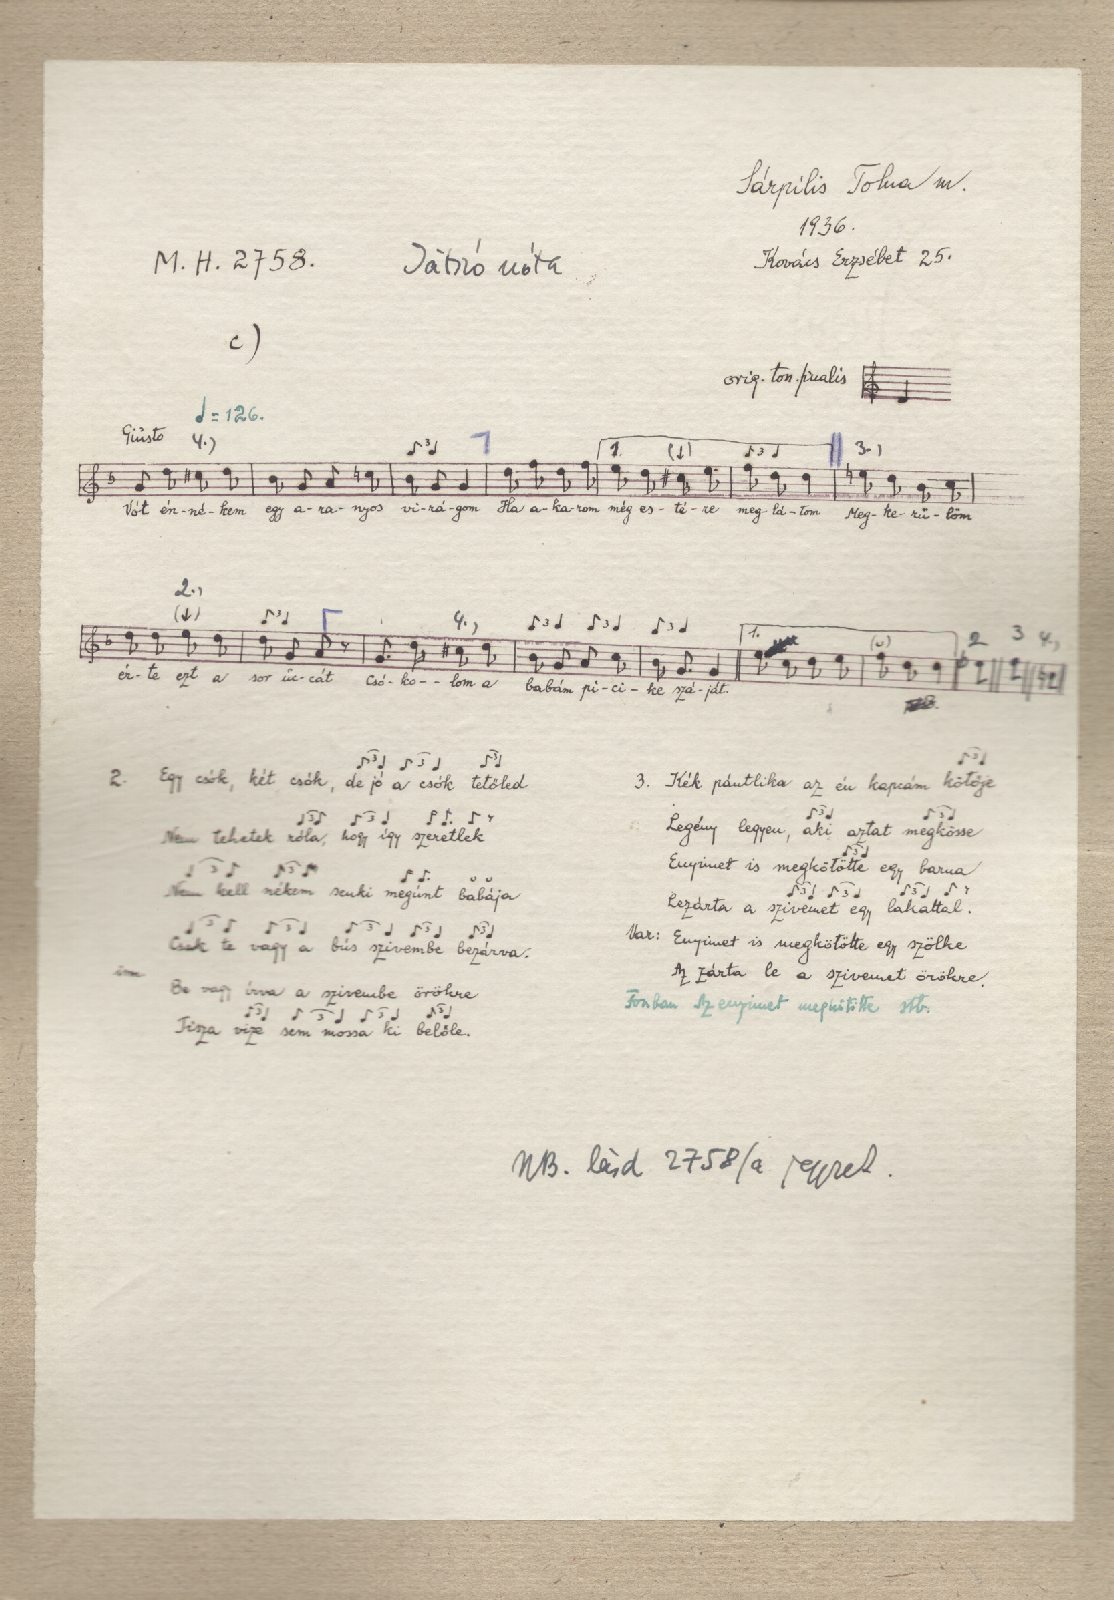 Sárpilis Tolna m.
1936.
M. H. 2758. Játszó nóta
Kovács Erzsébet 25.
c)
orig. ton. finalis
♩ = 126.
Giusto 4.)
1. (↓) 3.)
Vót én-né-kem egy a-ra-nyos vi-rá-gom Ha a-ka-rom még es-té-re meg-lá-tom Meg-ke-rű-löm
2.)
(↓) 4.) 1. 2 3 4.)
ér-te ezt a sor uc-cát Csó-ko--lom a babám pi-ci-ke szá-ját.
2. Egy csók, két csók, de jó a csók tetőled
Nem tehetek róla, hogy így szeretlek
Nem kell nékem senki megúnt babája
Csak te vagy a bús szivembe bezárva.
Be vagy írva a szivembe örökre
Tisza vize sem mossa ki belőle.
3. Kék pántlika az én kapcám kötője
Legény legyen, aki aztat megkösse
Enyimet is megkötötte egy barna
Lezárta a szivemet egy lakattal.
Var: Enyimet is megkötötte egy szőlke
Az zárta le a szivemet örökre.
Az enyimet megkötötte stb.
NB. lásd 2758/a jegyzet.